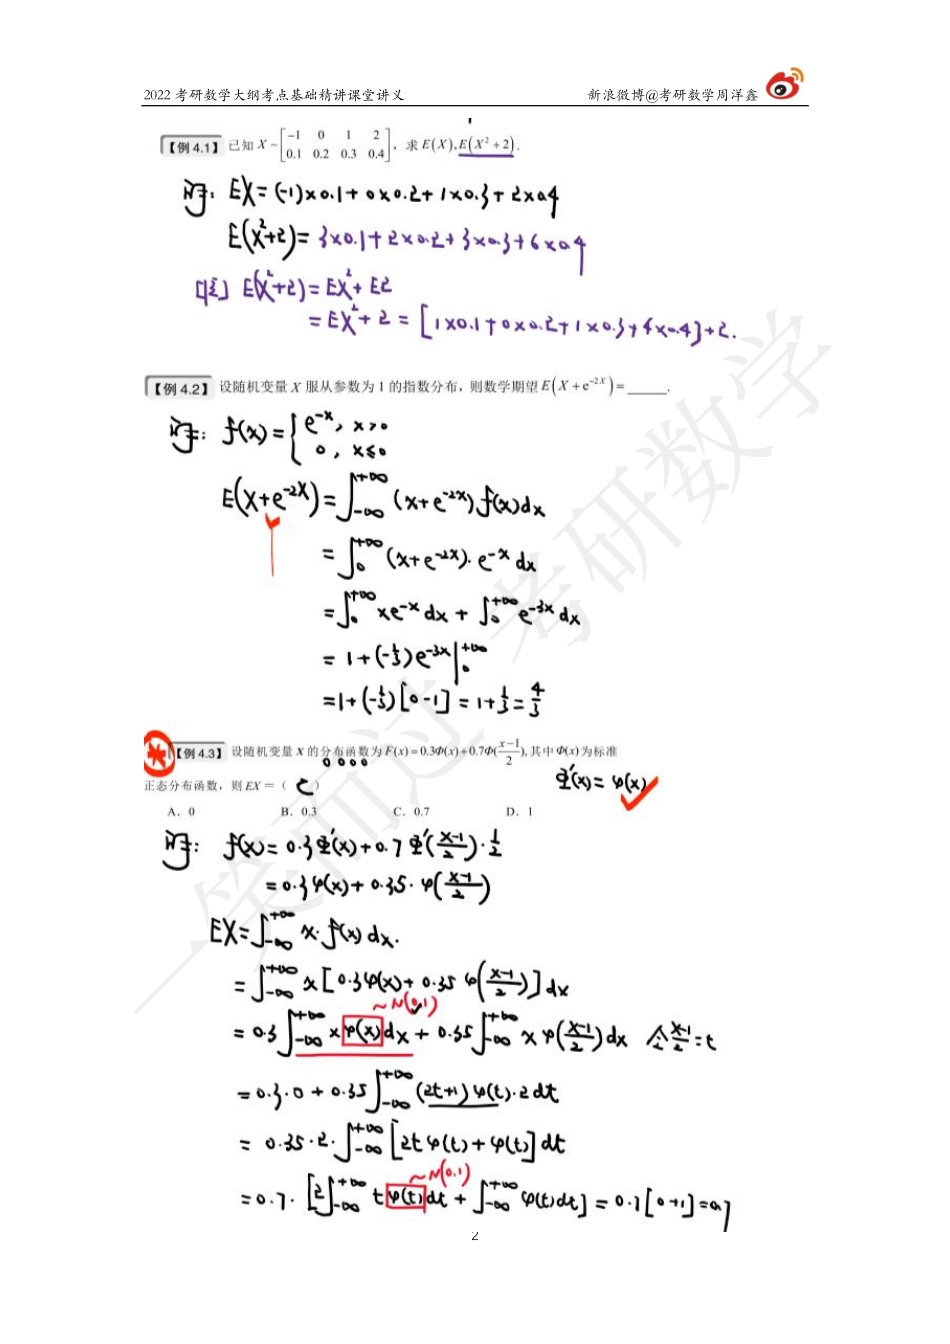 2022 考研数学大纲考点基础精讲课堂讲义 新浪微博@考研数学周洋鑫
【例 4.1】 已知 X ~ [-1 0 1 2 / 0.1 0.2 0.3 0.4], 求 E(X), E(X²+2).
解: EX = (-1)×0.1 + 0×0.2 + 1×0.3 + 2×0.4
E(X²+2) = 3×0.1 + 2×0.2 + 3×0.3 + 6×0.4
E(X²+2) = EX² + E2
= EX² + 2 = [1×0.1 + 0×0.2 + 1×0.3 + 4×0.4] + 2.
【例 4.2】 设随机变量 X 服从参数为 1 的指数分布，则数学期望 E(X + e^{-2X}) = _____.
解: f(x) = { e^{-x}, x>0
0, x≤0
E(X+e^{-2X}) = ∫_{-∞}^{+∞} (x+e^{-2x}) f(x)dx
= ∫_0^{+∞} (x+e^{-2x})·e^{-x} dx
= ∫_0^{+∞} xe^{-x} dx + ∫_0^{+∞} e^{-3x} dx
= 1 + (-1/3)e^{-3x} |_0^{+∞}
= 1 + (-1/3)[0-1] = 1 + 1/3 = 4/3
【例 4.3】 设随机变量 X 的分布函数为 F(x) = 0.3Φ(x) + 0.7Φ((x-1)/2), 其中 Φ(x) 为标准
正态分布函数，则 EX = ( C )
Φ'(x) = φ(x)
A. 0 B. 0.3 C. 0.7 D. 1
解: f(x) = 0.3Φ'(x) + 0.7Φ'((x-1)/2)·1/2
= 0.3φ(x) + 0.35·φ((x-1)/2)
EX = ∫_{-∞}^{+∞} x·f(x) dx.
= ∫_{-∞}^{+∞} x[0.3φ(x) + 0.35 φ((x-1)/2)] dx
~N(0,1)
= 0.3 ∫_{-∞}^{+∞} x φ(x) dx + 0.35 ∫_{-∞}^{+∞} x φ((x-1)/2) dx 令 (x-1)/2 = t
= 0.3·0 + 0.35 ∫_{-∞}^{+∞} (2t+1) φ(t)·2dt
= 0.35·2·∫_{-∞}^{+∞} [2tφ(t) + φ(t)] dt
~N(0,1)
= 0.7·[2∫_{-∞}^{+∞} t φ(t) dt + ∫_{-∞}^{+∞} φ(t)dt] = 0.7[0+1] = 0.7
2
一笑而过 考研数学